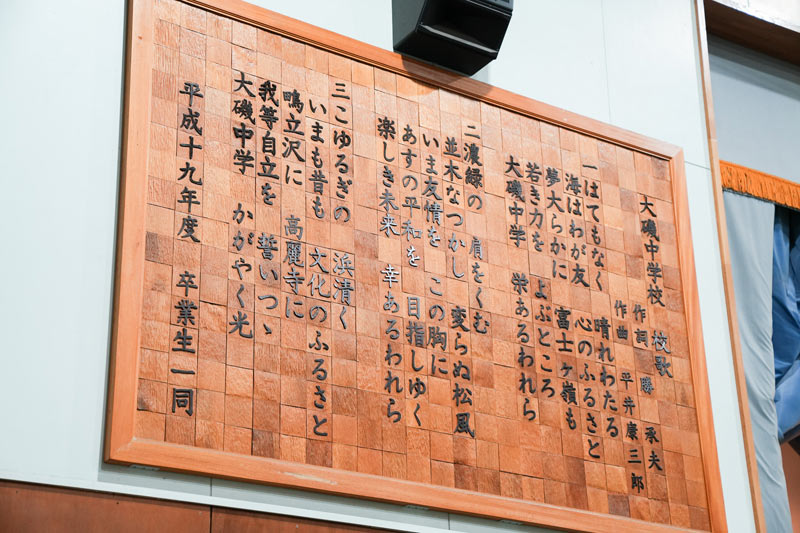 大磯中学校 校歌
作詞 勝 承夫
作曲 平井康三郎
一 はてもなく 晴れわたる
海はわが友 心のふるさと
夢大らかに 富士ヶ嶺も
若き力を よぶところ
大磯中学 栄あるわれら
二 濃緑の 肩をくむ
並木なつかし 変らぬ松風
いま友情を この胸に
あすの平和を 目指しゆく
楽しき未来 幸あるわれら
三 こゆるぎの 浜清く
いまも昔も 文化のふるさと
鴫立沢に 高麗寺に
我等自立を 誓いつゝ
大磯中学 かがやく光
平成十九年度 卒業生一同